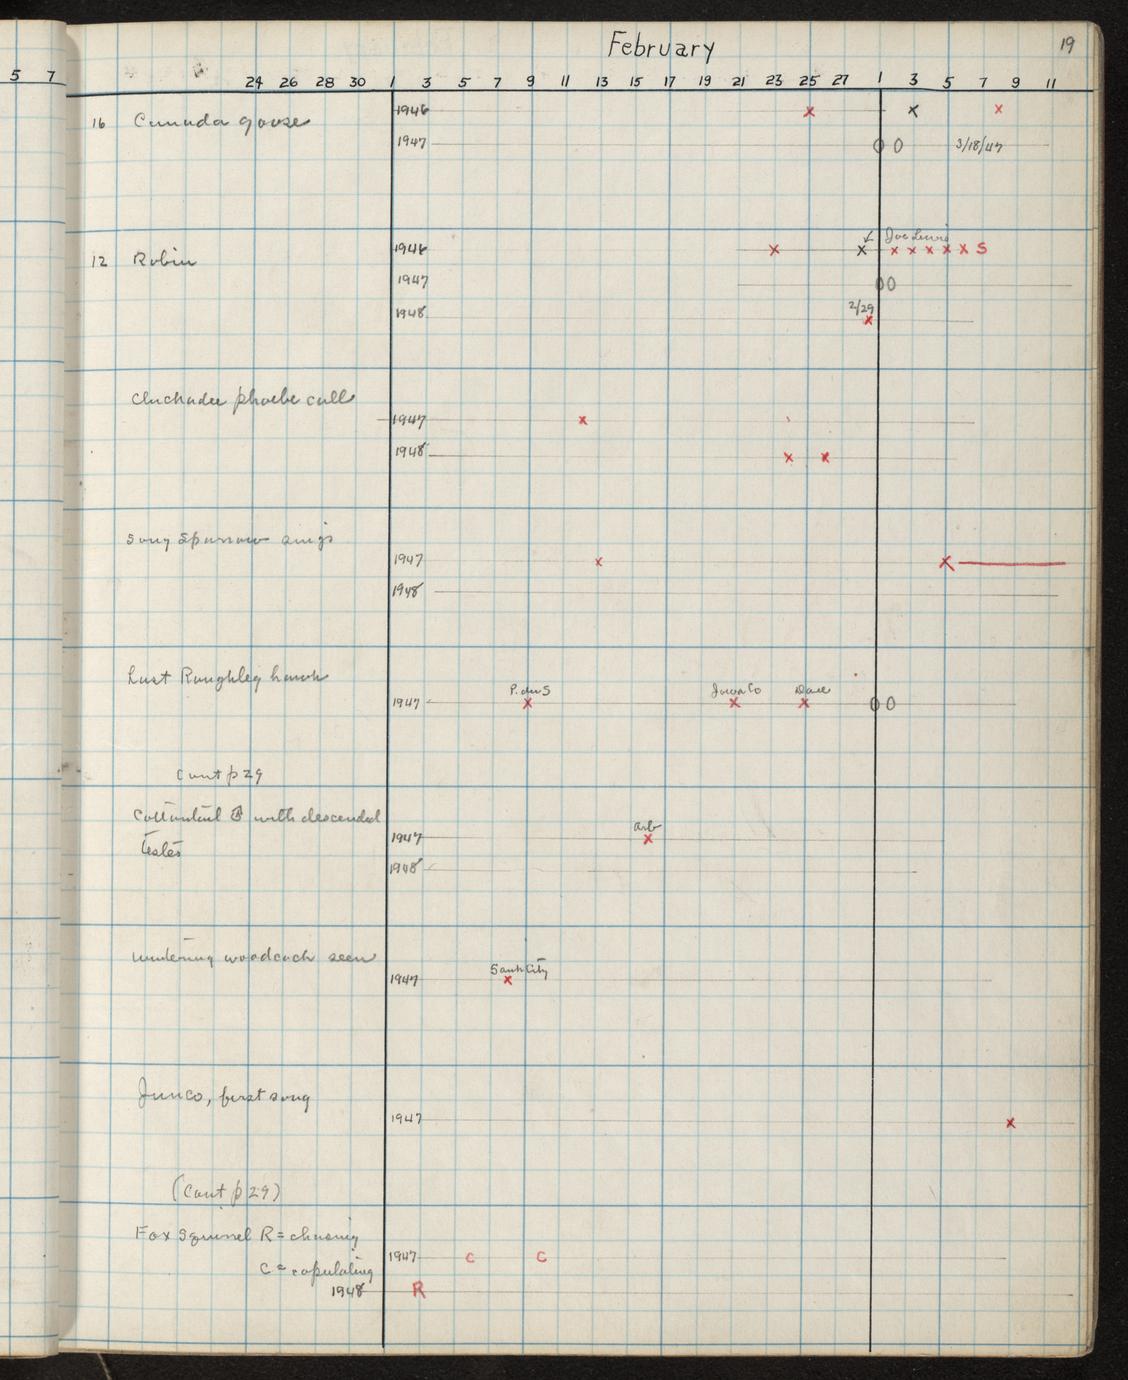 February 19
5 7 24 26 28 30 1 3 5 7 9 11 13 15 17 19 21 23 25 27 1 3 5 7 9 11
16 Canada goose 1946 x x x
1947 0 0 3/18/47
Joe Lewis
12 Robin 1946 x x x x x x x S
1947 0 0
2/29
1948 x
Chickadee phoebe call
1947 x
1948 x x
Song Sparrow sings
1947 x x
1948
Last Roughleg hawk
P. du S Iowa Co Dane
1947 x x x 0 0
Cont p 29
Cottontail ♂ with descended
arb
testes 1947 x
1948
Wintering woodcock seen
Sauk City
1947 x
Junco, first song
1947 x
(Cont p 29)
Fox Squirrel R = chasing
1947 C C
C = copulating
1948 R